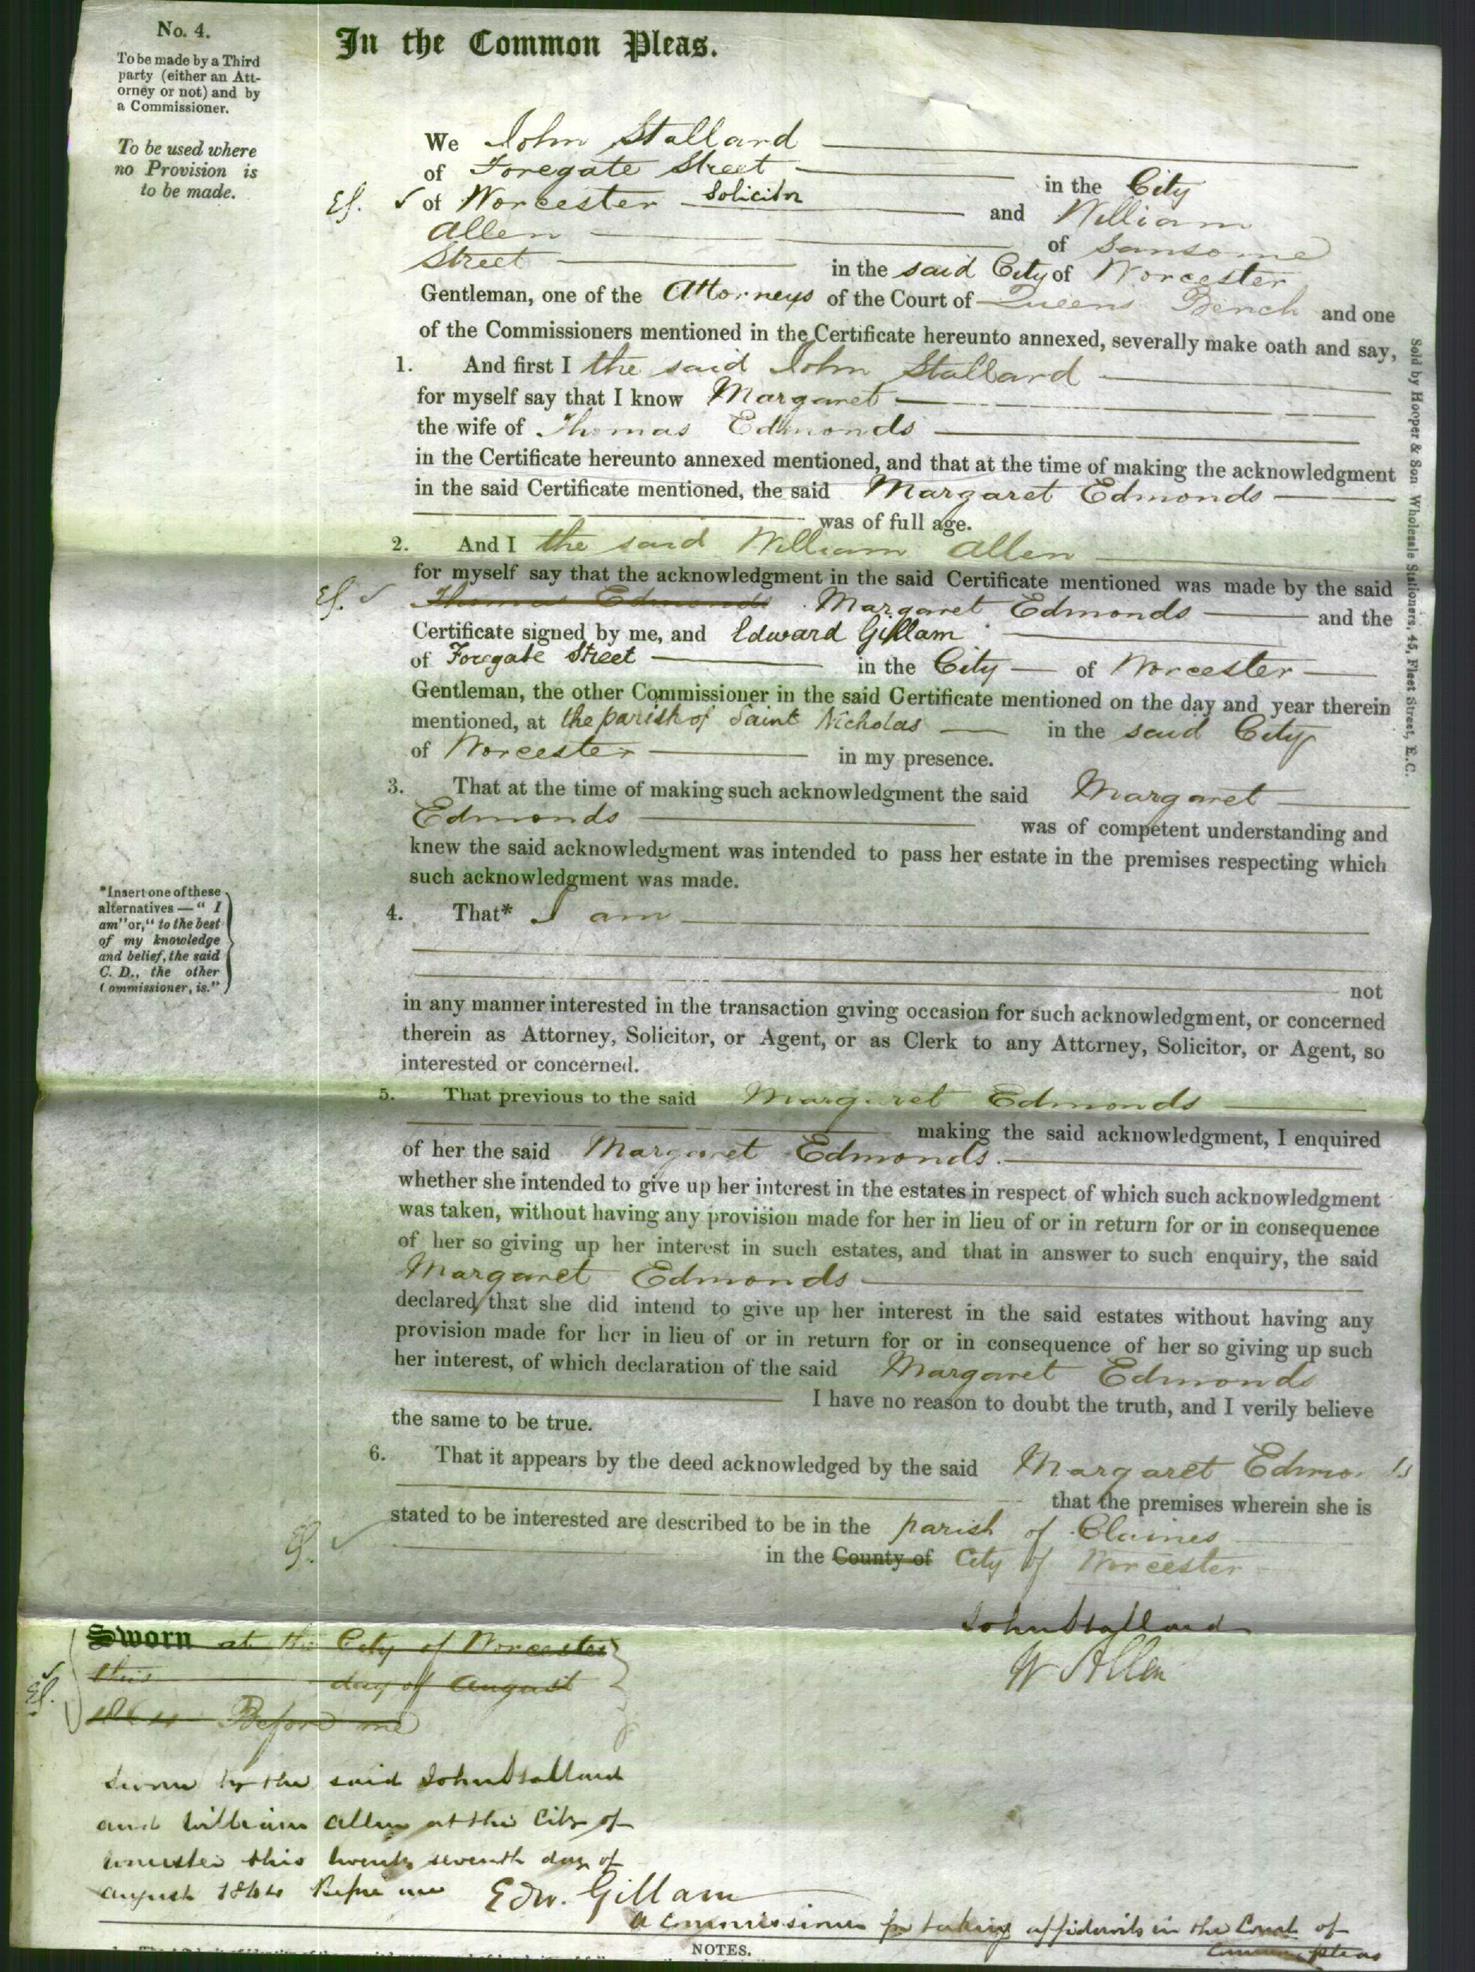 No. 4.
To be made by a Third
party (either an Att-
orney or not) and by
a Commissioner.
To be used where
no Provision is
to be made.
In the Common Pleas.
We John Stallard
of Foregate Street in the City
of Worcester Solicitor and William
Allen of Sansome
Street in the said City of Worcester
Gentleman, one of the Attorneys of the Court of Queens Bench and one
of the Commissioners mentioned in the Certificate hereunto annexed, severally make oath and say,
1. And first I the said John Stallard
for myself say that I know Margaret
the wife of Thomas Edmonds
in the Certificate hereunto annexed mentioned, and that at the time of making the acknowledgment
in the said Certificate mentioned, the said Margaret Edmonds
was of full age.
2. And I the said William Allen
for myself say that the acknowledgment in the said Certificate mentioned was made by the said
Thomas Edmonds Margaret Edmonds and the
Certificate signed by me, and Edward Gillam
of Foregate Street in the City of Worcester
Gentleman, the other Commissioner in the said Certificate mentioned on the day and year therein
mentioned, at the parish of Saint Nicholas in the said City
of Worcester in my presence.
3. That at the time of making such acknowledgment the said Margaret
Edmonds was of competent understanding and
knew the said acknowledgment was intended to pass her estate in the premises respecting which
such acknowledgment was made.
*Insert one of these
alternatives—"I
am" or, "to the best
of my knowledge
and belief, the said
C. D., the other
Commissioner, is."
4. That* I am
not
in any manner interested in the transaction giving occasion for such acknowledgment, or concerned
therein as Attorney, Solicitor, or Agent, or as Clerk to any Attorney, Solicitor, or Agent, so
interested or concerned.
5. That previous to the said Margaret Edmonds
making the said acknowledgment, I enquired
of her the said Margaret Edmonds.
whether she intended to give up her interest in the estates in respect of which such acknowledgment
was taken, without having any provision made for her in lieu of or in return for or in consequence
of her so giving up her interest in such estates, and that in answer to such enquiry, the said
Margaret Edmonds
declared that she did intend to give up her interest in the said estates without having any
provision made for her in lieu of or in return for or in consequence of her so giving up such
her interest, of which declaration of the said Margaret Edmonds
I have no reason to doubt the truth, and I verily believe
the same to be true.
6. That it appears by the deed acknowledged by the said Margaret Edmonds
that the premises wherein she is
stated to be interested are described to be in the parish of Claines
in the County of City of Worcester
John Stallard
W Allen
Sworn at the City of Worcester
this day of August
1864 Before me
Sworn by the said John Stallard
and William Allen at the City of
Worcester this twenty seventh day of
August 1864 Before me Edw. Gillam
A Commissioner for taking affidavits in the Court of
Common Pleas
NOTES.
Sold by Hooper & Son Wholesale Stationers, 45, Fleet Street, E.C.